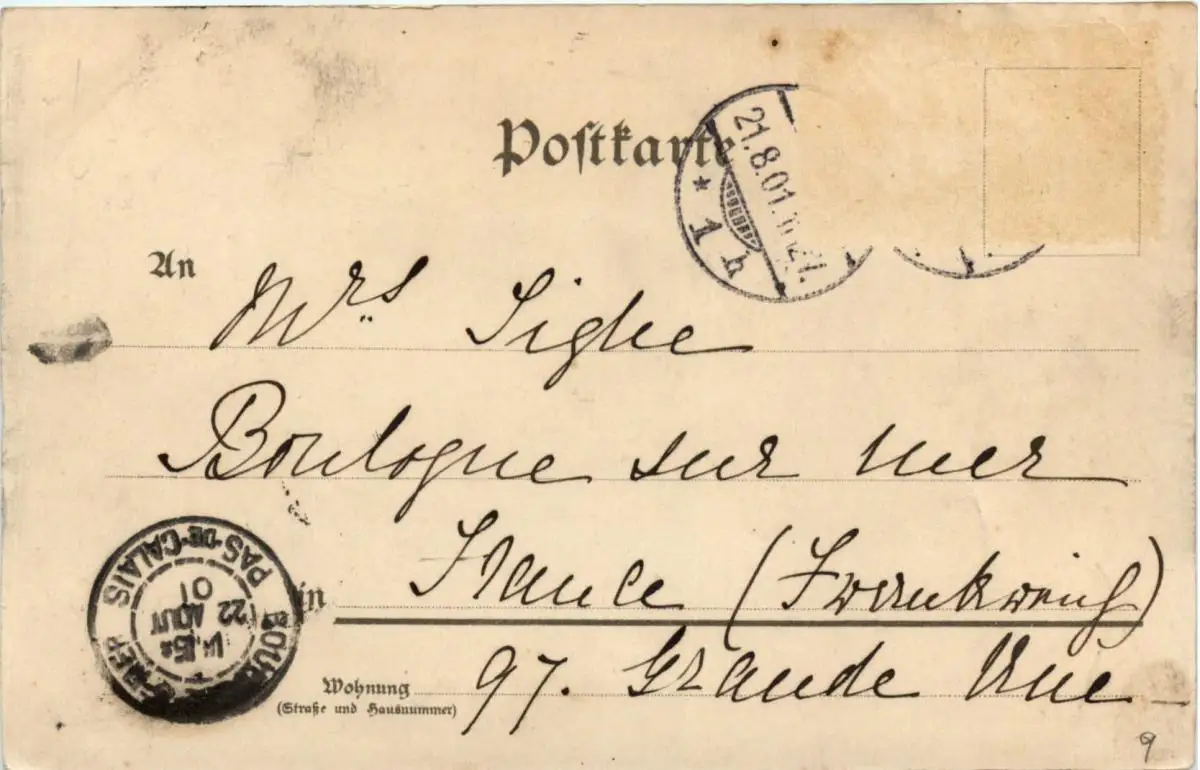 Postkarte
21.8.01.
* 1 h
An
Mrs
Boulogne sur mer
in France (Frankreich)
Wohnung 97. Grande Rue
(Straße und Hausnummer)
PAS-DE-CALAIS
22 AOUT
01
9